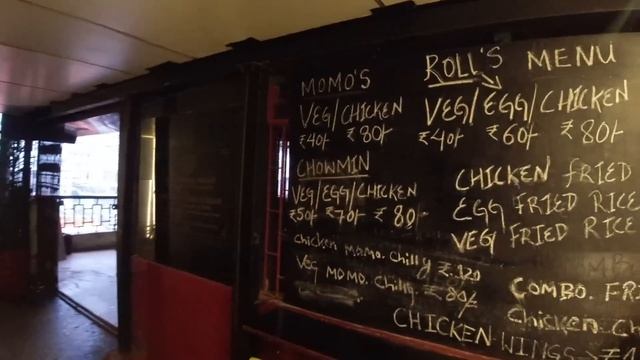 MOMO'S
VEG/CHICKEN
₹40/- ₹80/-
CHOWMIN
VEG/EGG/CHICKEN
₹50/- ₹70/- ₹80/-
chicken momo. chilly ₹.120
Veg momo. chilly. ₹80/-
ROLL'S MENU
VEG/EGG/CHICKEN
₹40/- ₹60/- ₹80/-
CHICKEN FRIED
EGG FRIED RICE
VEG FRIED RICE
COMBO. FRI
Chicken. C
CHICKEN. WINGS